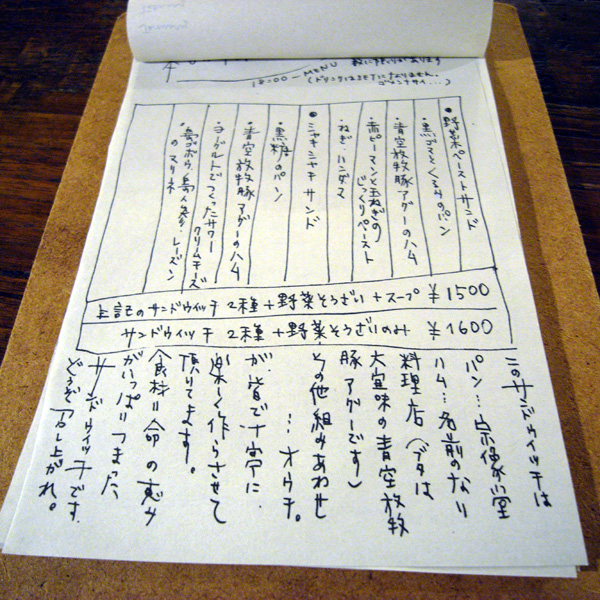 18:00〜MENU
(ドリンクはSETになりません。
ゴメンナサイ...)
●野菜ペーストサンド
・黒ゴマとくるみのパン
・青空放牧豚アグーのハム
・赤ピーマンと玉ねぎの
じっくりペースト
・ねぎ・ハンダマ
●シャキシャキサンド
・黒糖のパン
・青空放牧豚アグーのハム
・ヨーグルトでつくったサワー
クリームチーズ
・島ゴボウ、島人参、レーズン
のマリネ
上記のサンドウィッチ 2種+野菜そうざい+スープ ¥1500
サンドウィッチ 2種+野菜そうざいのみ ¥1600
このサンドウィッチは
パン…宗像堂
ハム…名前のない
料理店(ブタは
大宜味の青空放牧
豚アグーです)
その他組みあわせ
…オウチ。
が、皆で丁寧に
楽しく作らさせて
頂いてます。
食材=命の恵み
がいっぱいつまった
サンドウィッチです。
どうぞ召し上がれ。